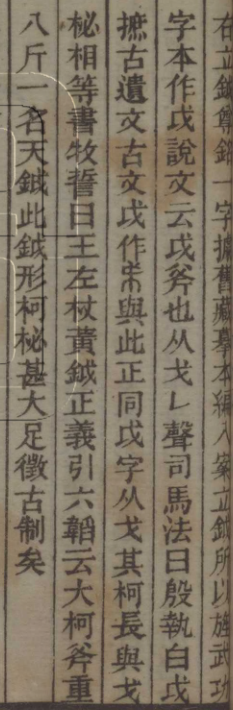 右立鉞尊銘一字據舊藏摹本編入案立鉞所以旌武功
字本作戉說文云戉斧也从戈レ聲司馬法曰殷執白戉
摭古遺文古文戉作𢦏與此正同戉字从戈其柯長與戈
柲相等書牧誓曰王左杖黃鉞正義引六韜云大柯斧重
八斤一名天鉞此鉞形柯柲甚大足徵古制矣